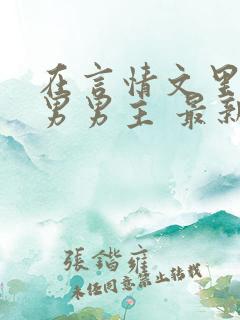 在言情文里
男男主 最新
張鍇雍
未经同意禁止转载